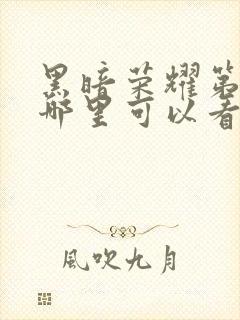 黑暗荣耀第
哪里可以看
風吹九月